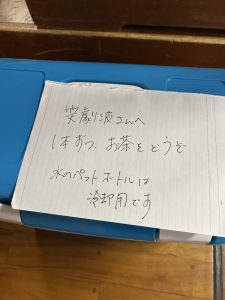 笑劇波さんへ
1本ずつ、お茶をどうぞ
水のペットボトルは
冷却用です